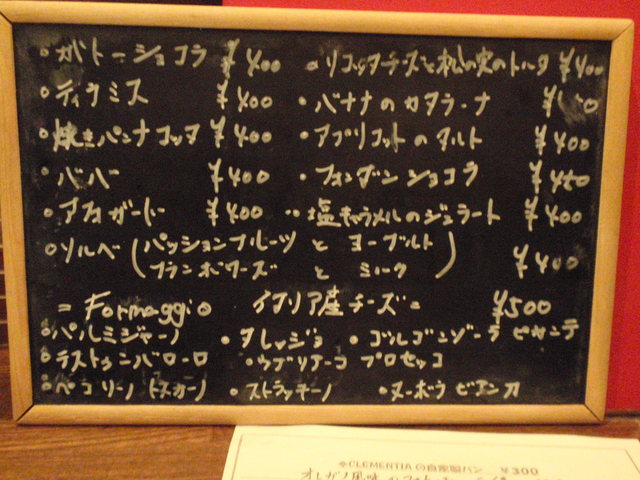 ○ガトーショコラ ¥400 ○リコッタチーズと松の実のトルタ ¥400
○ティラミス ¥400 ・バナナのカタラーナ
○焼きパンナコッタ ¥400 ・アプリコットのタルト ¥400
○ババ ¥400 ・フォンダンショコラ ¥450
○アフォガード ¥400 ・・塩キャラメルのジェラート ¥400
○ソルベ(パッションフルーツ と ヨーグルト
フランボワーズ と ミルク) ¥400
= Formaggio イタリア産チーズ= ¥500
○パルミジャーノ ・タレッジョ ・ゴルゴンゾーラ ピカンテ
○テストゥンバローロ ・ウブリアーコ プロセッコ
○ペコリーノ トスカーノ ・ストラッチーノ ・ヌーボラ ビアンカ
※CLEMENTIAの自家製パン ¥300
オレガノ風味の